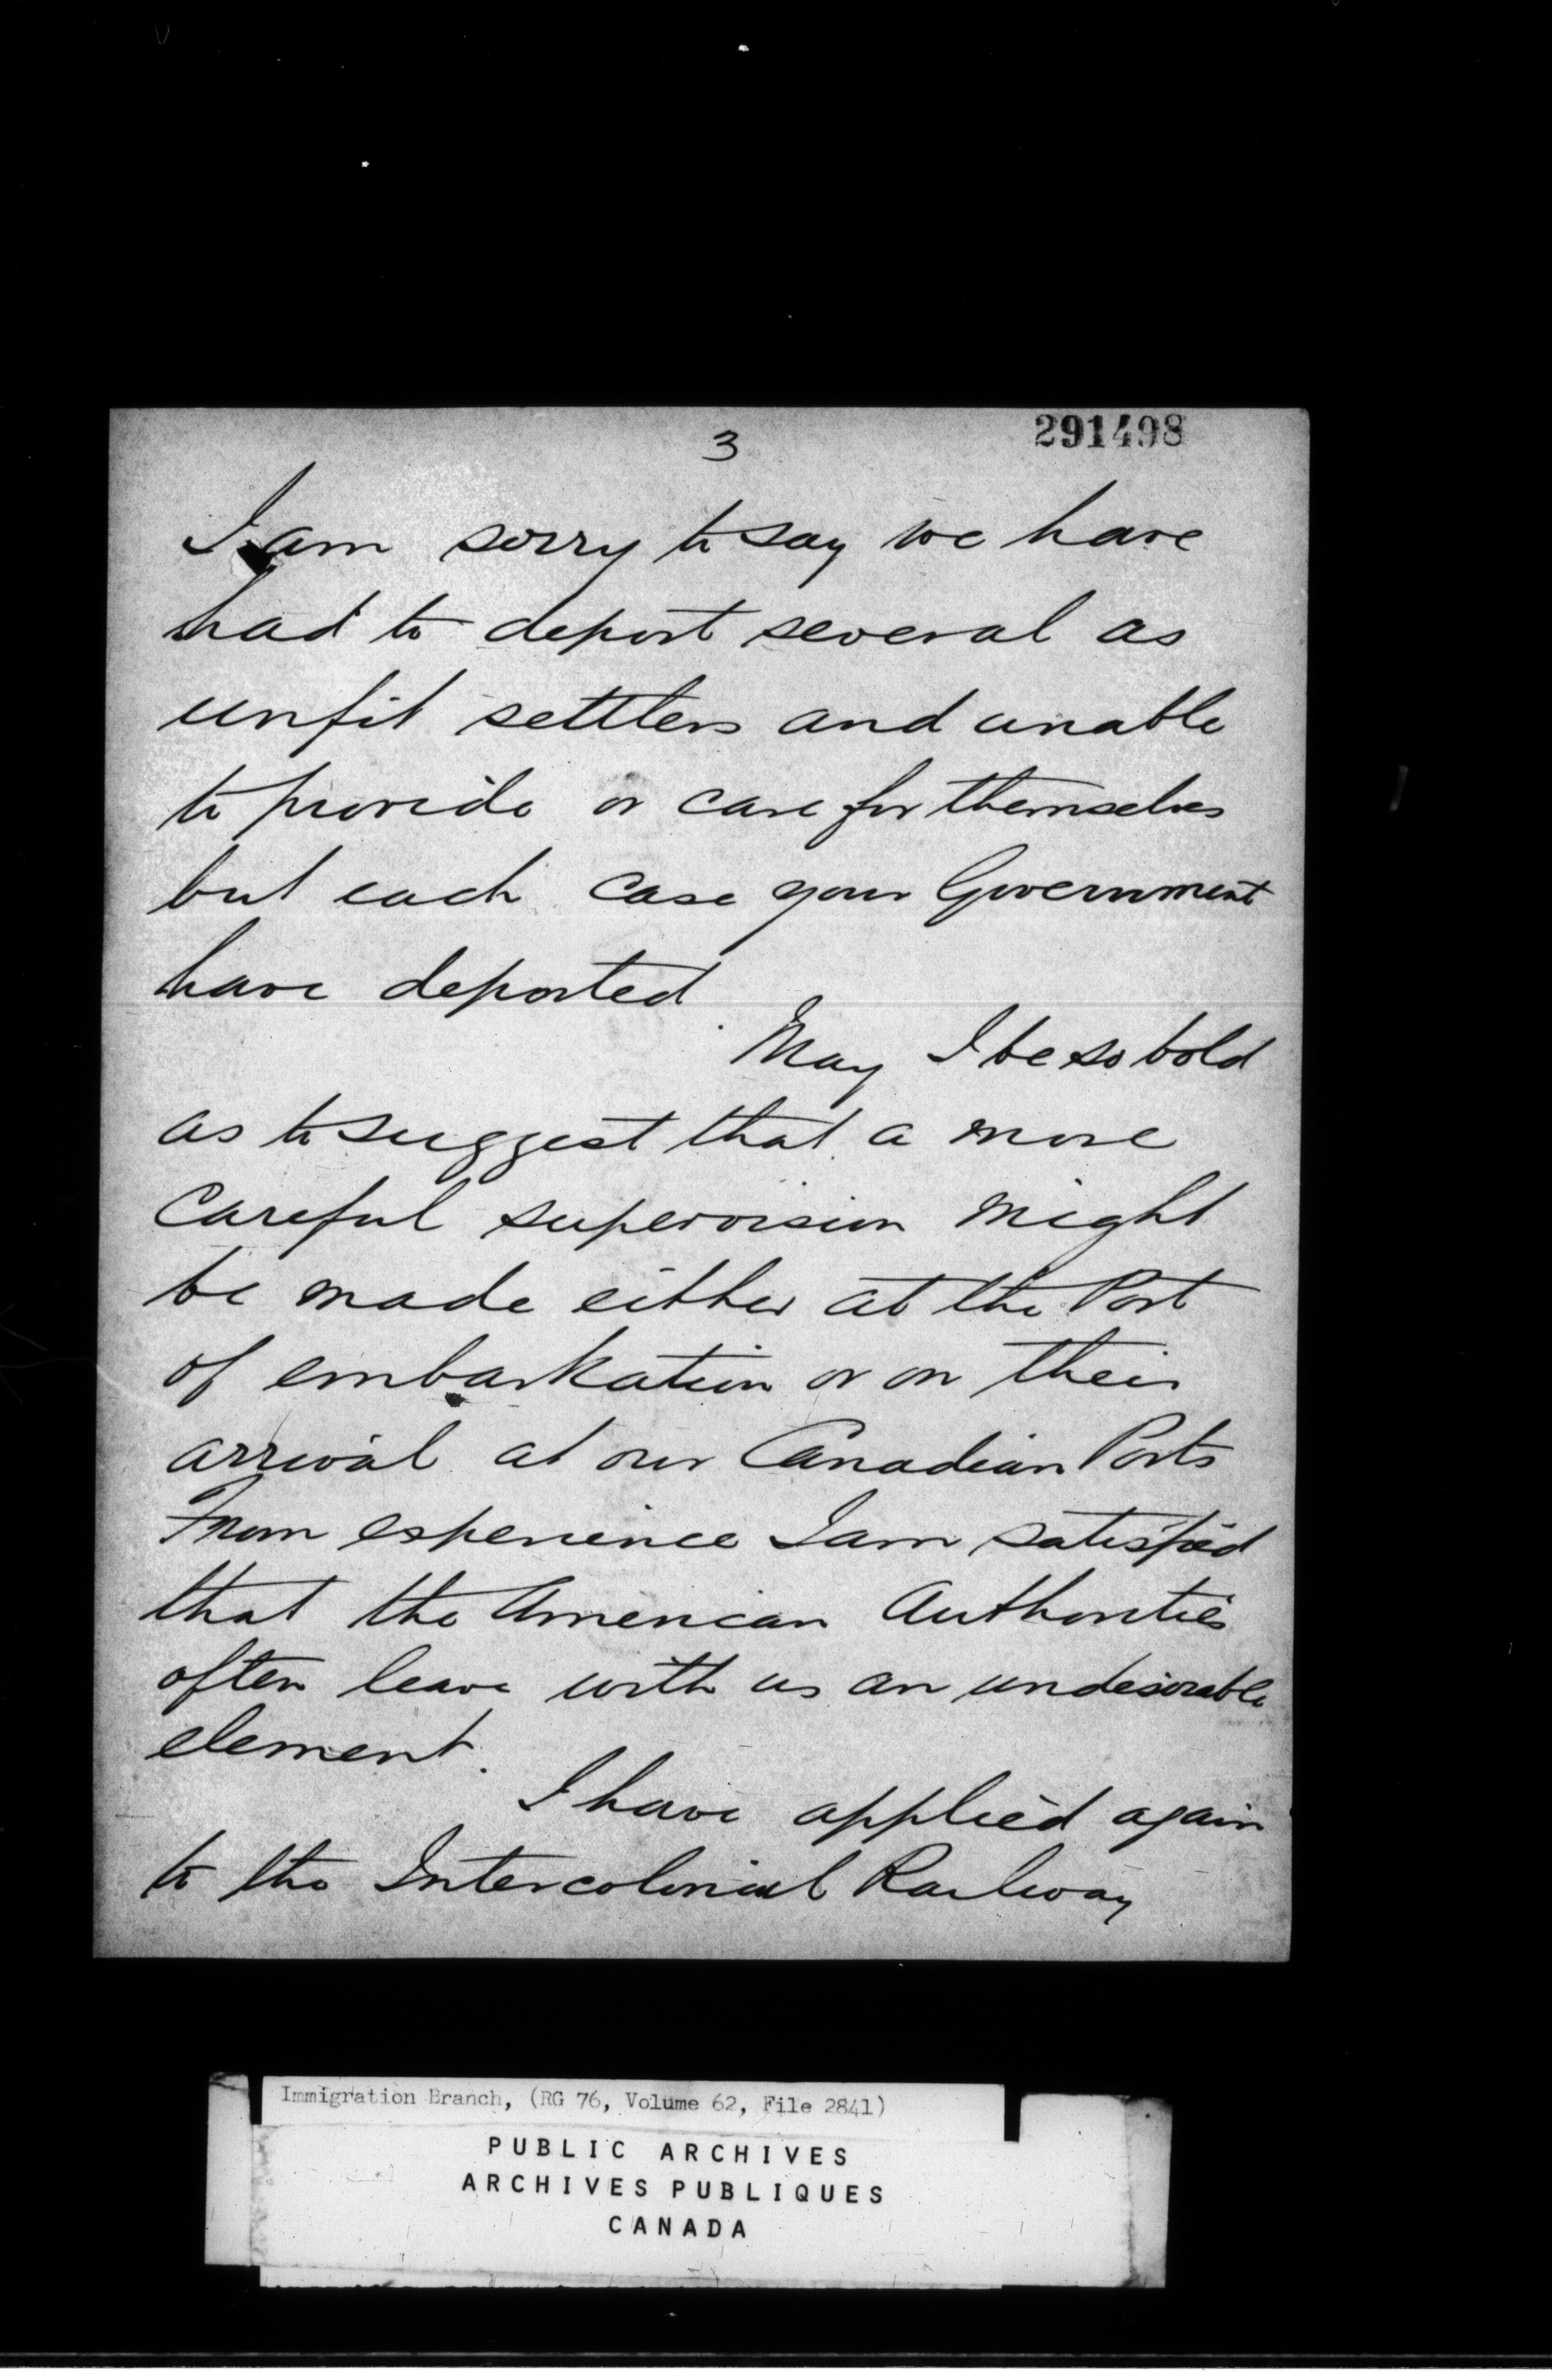 3
291498
I am sorry to say we have
had to deport several as
unfit settlers and unable
to provide or care for themselves
but each case your Government
have deported
May I be so bold
as to suggest that a more
careful supervision might
be made either at the Port
of embarkation or on their
arrival at our Canadian Ports
From experience I am satisfied
that the American Authorities
often leave with us an undesirable
element.
I have applied again
to the Intercolonial Railway
Immigration Branch, (RG 76, Volume 62, File 2841)
PUBLIC ARCHIVES
ARCHIVES PUBLIQUES
CANADA